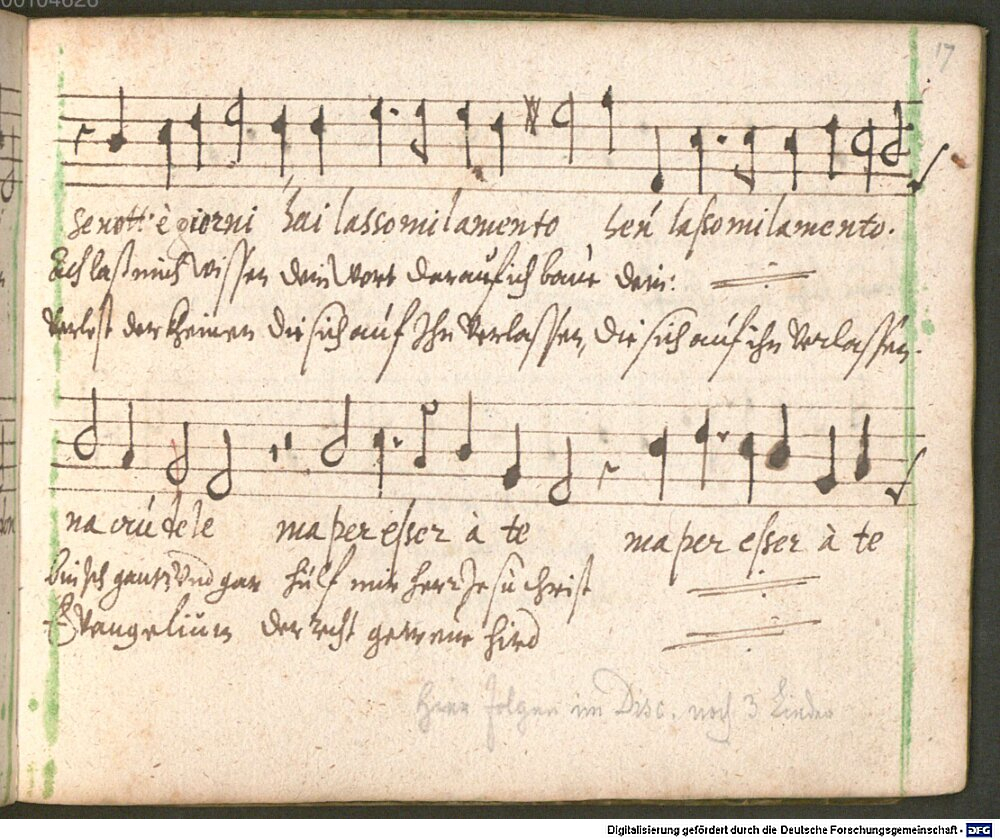 00104626
17
Se nott' è giorni hai lasso mi lamento heu lasso mi lamento.
Ach laß mich wissen dein Wort darauf ich baue dein:
Verlest der kheinen die sich auf Ihn verlassen, die sich auf ihn verlassen.
na crudele ma per esser à te ma per esser à te
bin ich gantz und gar hülf mir herr Jesu Christ
Evangelium der recht getreue hird
Hier folgen im Disc. noch 3 Lieder
Digitalisierung gefördert durch die Deutsche Forschungsgemeinschaft - DFG